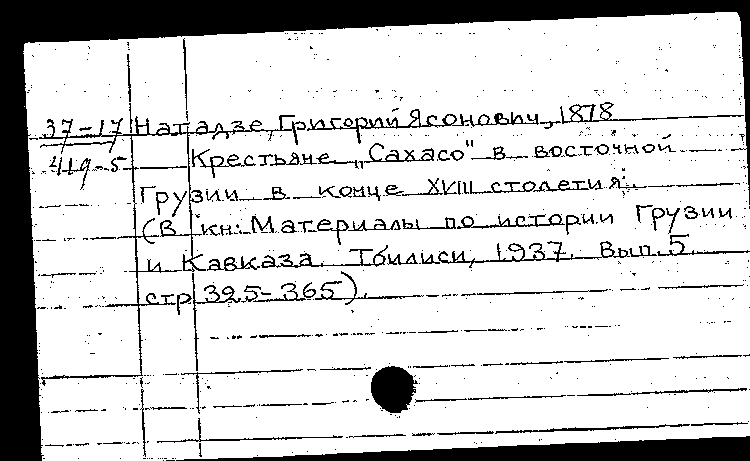 37-17 Натадзе, Григорий Ясонович, 1878
419-5 Крестьяне „Сахасо" в восточной
Грузии в конце XVIII столетия.
(В кн: Материалы по истории Грузии
и Кавказа. Тбилиси, 1937. Вып. 5.
стр 325-365).